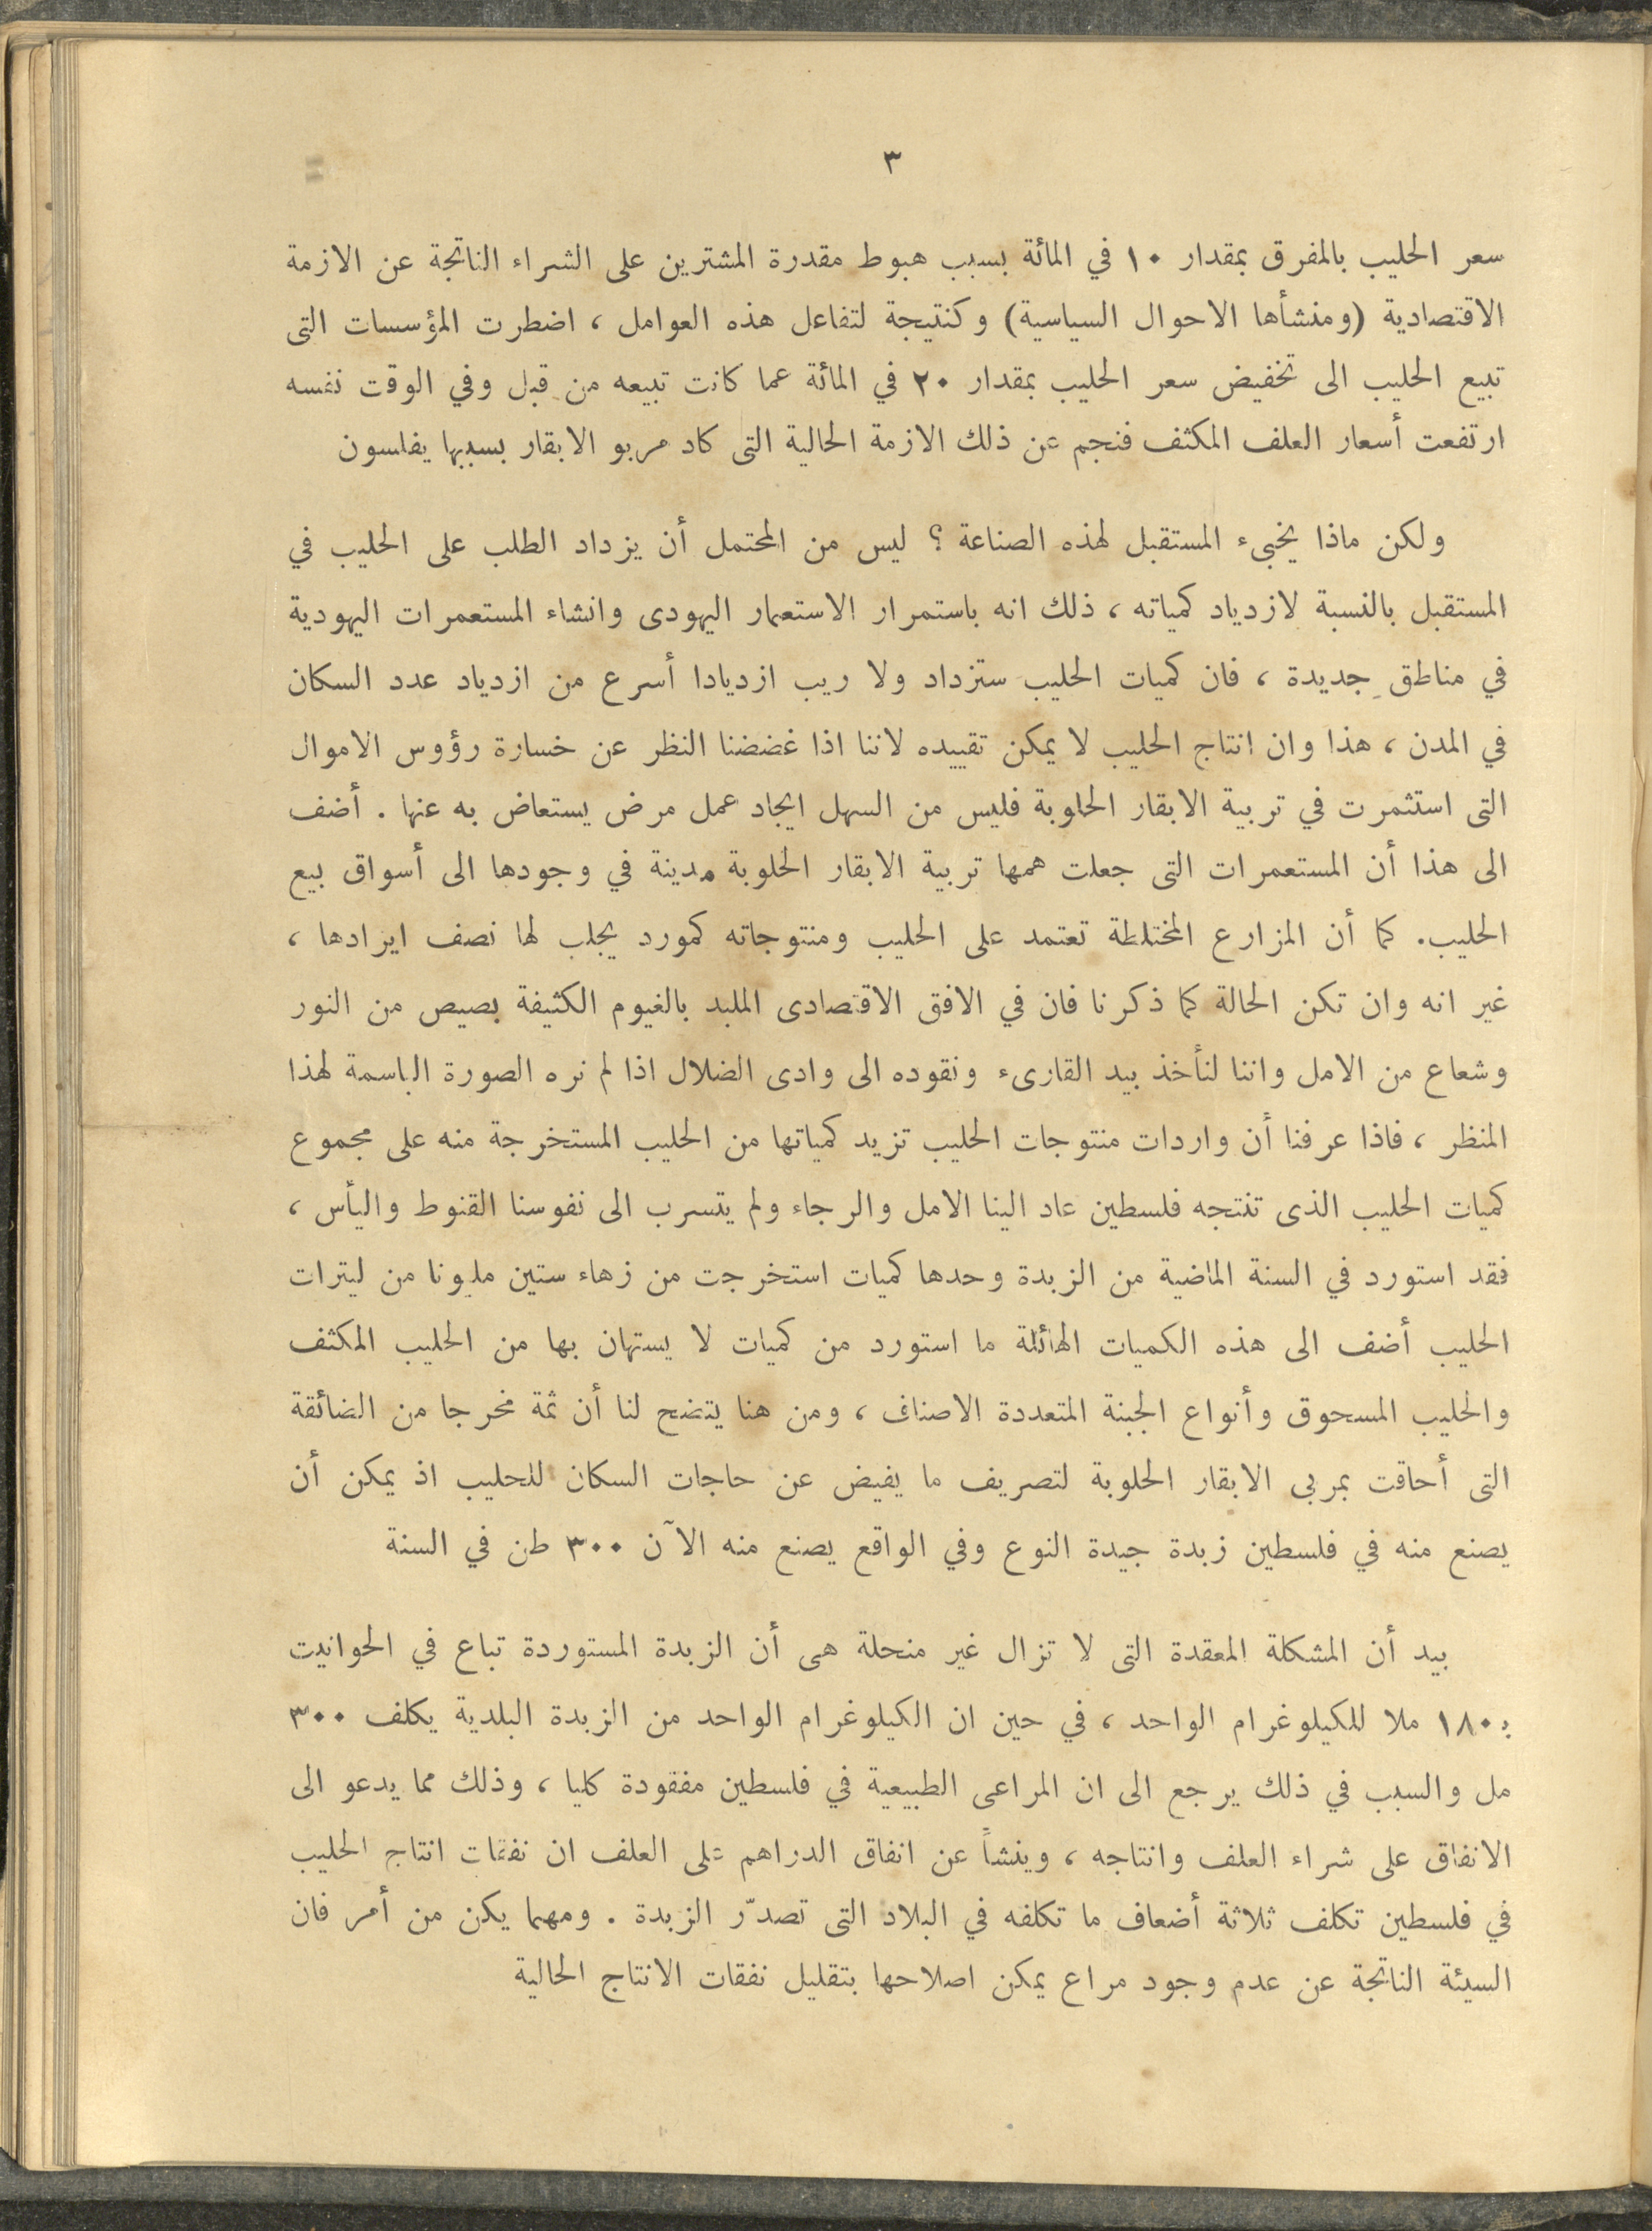 ٣
سعر الحليب بالمفرق بمقدار ١٠ في المائة بسبب هبوط مقدرة المشترين على الشراء الناتجة عن الازمة
الاقتصادية (ومنشأها الاحوال السياسية) وكنتيجة لتفاعل هذه العوامل ، اضطرت المؤسسات التى
تبيع الحليب الى تخفيض سعر الحليب بمقدار ٢٠ في المائة عما كانت تبيعه من قبل وفي الوقت نفسه
ارتفعت أسعار العلف المكثف فنجم عن ذلك الازمة الحالية التى كاد مربو الابقار بسببها يفلسون
ولكن ماذا يخبىء المستقبل لهذه الصناعة ؟ ليس من المحتمل أن يزداد الطلب على الحليب في
المستقبل بالنسبة لازدياد كمياته ، ذلك انه باستمرار الاستعمار اليهودى وانشاء المستعمرات اليهودية
في مناطق جديدة ، فان كميات الحليب ستزداد ولا ريب ازديادا أسرع من ازدياد عدد السكان
في المدن ، هذا وان انتاج الحليب لا يمكن تقييده لاننا اذا غضضنا النظر عن خسارة رؤوس الاموال
التى استثمرت في تربية الابقار الحلوبة فليس من السهل ايجاد عمل مرض يستعاض به عنها . أضف
الى هذا أن المستعمرات التى جعلت همها تربية الابقار الحلوبة مدينة في وجودها الى أسواق بيع
الحليب. كما أن المزارع المختلطة تعتمد على الحليب ومنتوجاته كمورد يجلب لها نصف ايرادها ،
غير انه وان تكن الحالة كما ذكرنا فان في الافق الاقتصادى الملبد بالغيوم الكثيفة بصيص من النور
وشعاع من الامل واننا لنأخذ بيد القارىء ونقوده الى وادى الضلال اذا لم نره الصورة الباسمة لهذا
المنظر ، فاذا عرفنا أن واردات منتوجات الحليب تزيد كمياتها من الحليب المستخرجة منه على مجموع
كميات الحليب الذى تنتجه فلسطين عاد الينا الامل والرجاء ولم يتسرب الى نفوسنا القنوط واليأس ،
فقد استورد في السنة الماضية من الزبدة وحدها كميات استخرجت من زهاء ستين مليونا من ليترات
الحليب أضف الى هذه الكميات الهائلة ما استورد من كميات لا يستهان بها من الحليب المكثف
والحليب المسحوق وأنواع الجبنة المتعددة الاصناف ، ومن هنا يتضح لنا أن ثمة مخرجا من الضائقة
التى أحاقت بمربى الابقار الحلوبة لتصريف ما يفيض عن حاجات السكان للحليب اذ يمكن أن
يصنع منه في فلسطين زبدة جيدة النوع وفي الواقع يصنع منه الآن ٣٠٠ طن في السنة
بيد أن المشكلة المعقدة التى لا تزال غير منحلة هى أن الزبدة المستوردة تباع في الحوانيت
بـ١٨٠ ملا للكيلوغرام الواحد ، في حين ان الكيلوغرام الواحد من الزبدة البلدية يكلف ٣٠٠
مل والسبب في ذلك يرجع الى ان المراعى الطبيعية في فلسطين مفقودة كليا ، وذلك مما يدعو الى
الانفاق على شراء العلف وانتاجه ، وينشأ عن انفاق الدراهم على العلف ان نفقات انتاج الحليب
في فلسطين تكلف ثلاثة أضعاف ما تكلفه في البلاد التى تصدّر الزبدة . ومهما يكن من أمر فان
السيئة الناتجة عن عدم وجود مراع يمكن اصلاحها بتقليل نفقات الانتاج الحالية